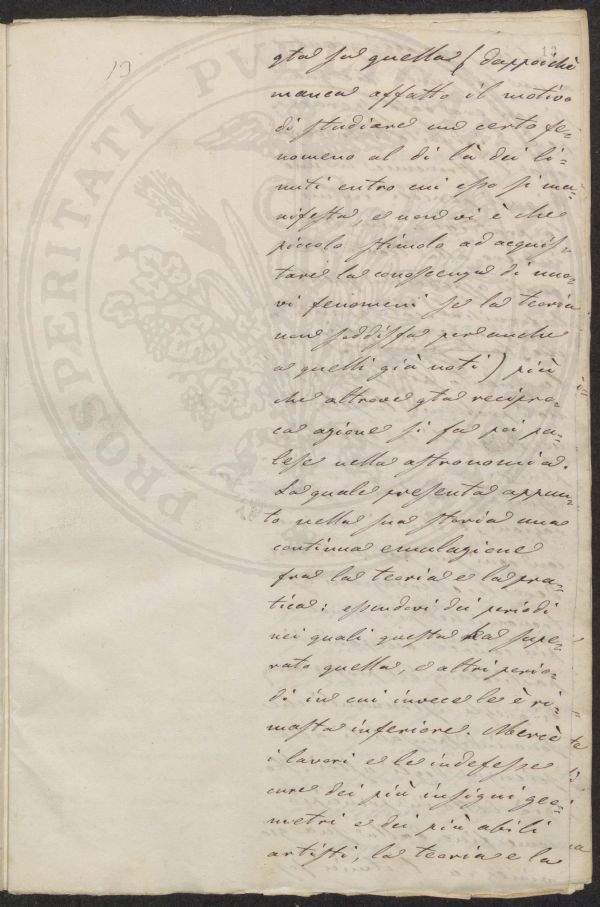 PROSPERITATI PVBLI
13
13
qta su quella (dappoichè
manca affatto il motivo
di studiare un certo fe=
nomeno al di là dei li=
miti entro cui esso si ma=
nifesta, e non vi è che
piccolo stimolo ad acquis=
tare la conoscenza di nuo=
vi fenomeni se la teoria
non soddisfa per anche
a quelli già noti) più
che altrove qta recipro=
ca azione si fa poi pa=
lese nella astronomia.
La quale presenta appun=
to nella sua storia una
continua emulazione
fra la teoria e la pra=
tica: essendovi dei periodi
nei quali questa ha supe=
rato quella, e altri perio=
di in cui invece le è ri=
masta inferiore. Mercè
i lavori e le indefesse
cure dei più insigni geo=
metri e dei più abili
artisti, la teoria e la